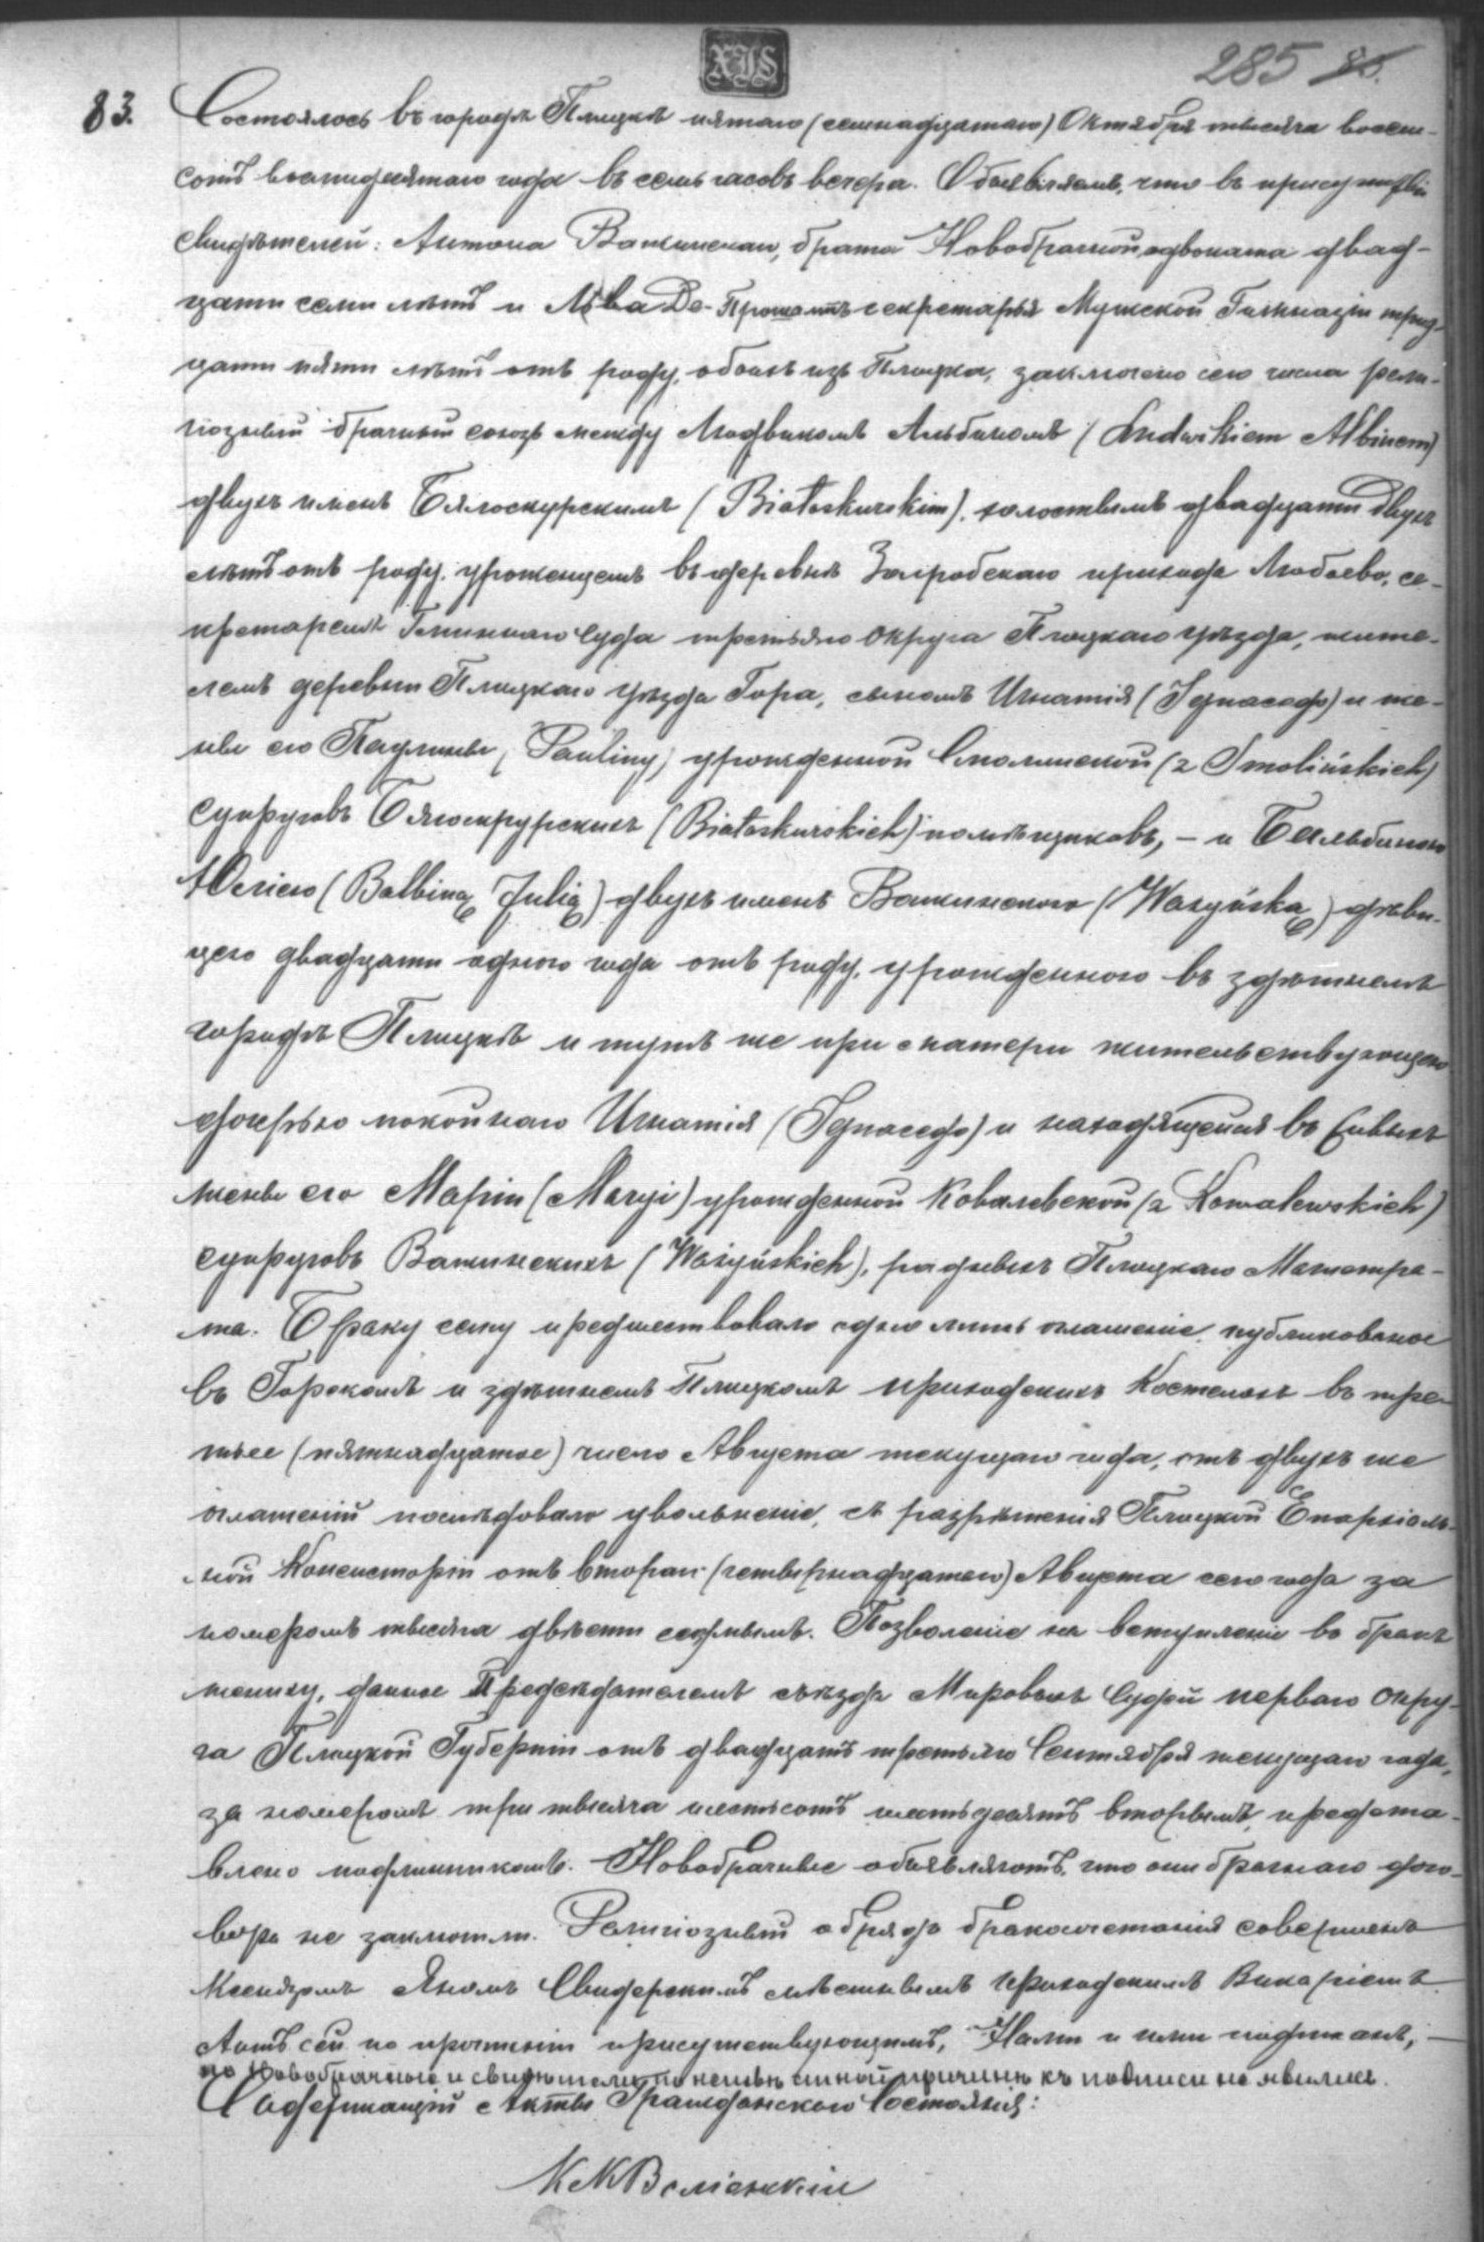 285 85.
83. Состоялось въ городѣ Плоцкѣ пятаго (семнадцатаго) Октября тысяча восем-
сотъ восьмидесятаго года въ семь часовъ вечера. Объявляемъ, что въ присутствіи
свидѣтелей: Антона Важинскаго, брата Новобрачной, адвоката двад-
цати семи лѣтъ и Льва Де- секретаря Мужской Гимназіи трид-
цати пяти лѣтъ отъ роду, обоихъ изъ Плоцка, заключенъ сего числа рели-
гіозный брачный союзъ между Людвикомъ Альбиномъ (Ludwikiem Albinem)
двухъ именъ Бялоскурскимъ (Białoskurskim), холостымъ двадцати двухъ
лѣтъ отъ роду, урожденцемъ въ деревнѣ прихода се-
кретаремъ Гминнаго Суда третьяго округа Плоцкаго уѣзда, жите-
лемъ деревни Плоцкаго уѣзда Гора, сыномъ Игнатія (Ignacego) и же-
ны его Паулины (Pauliny) урожденной Смолинской (z Smolińskich)
супруговъ Бялоскурскихъ (Białoskurskich) помѣщиковъ, – и Бальбиною
Юліею (Balbiną Julią) двухъ именъ Важинскою (Ważyńską) дѣви-
цею двадцати одного года отъ роду, урожденною въ здѣшнемъ
городѣ Плоцкѣ и тутъ же при матери жительствующею
дочерью покойнаго Игнатія (Ignacego) и находящейся въ живыхъ
жены его Маріи (Maryi) урожденной Ковалевской (z Kowalewskich)
супруговъ Важинскихъ (Ważyńskich), Плоцкаго Магистра-
та. Браку сему предшествовало одно лишь оглашеніе, публикованное
въ Горскомъ и здѣшнемъ Плоцкомъ приходскихъ Костелахъ въ тре-
тье (пятнадцатое) число Августа текущаго года, отъ двухъ же
оглашеній послѣдовало увольненіе, съ разрѣшенія Плоцкой Епархіаль-
ной Консисторіи отъ втораго (четырнадцатаго) Августа сего года за
номеромъ тысяча двѣсти седмымъ. Позволеніе на вступленіе въ бракъ
жениху, данное Предсѣдателемъ съѣзда Мировыхъ Судей перваго Окру-
га Плоцкой Губерніи отъ двадцать третьяго Сентября текущаго года,
за номеромъ три тысяча шестьсотъ шестьдесятъ вторымъ, предста-
влено подлинникомъ. Новобрачные объявляютъ, что они брачнаго дого-
вора не заключили. Религіозный обрядъ бракосочетанія совершенъ
Ксендзомъ Яномъ Свидерскимъ мѣстнымъ приходскимъ Викаріемъ.
Актъ сей по прочтеніи присутствующимъ, Нами и ими подписанъ, –
но Новобрачные и свидѣтели по неизвѣстной причинѣ къ подписи не явились.
Содержащій Акты Гражданскаго Состоянія: